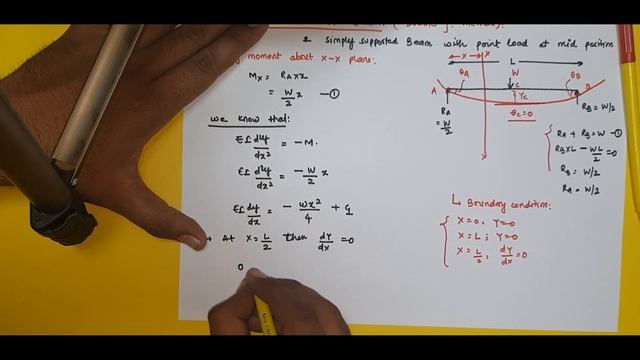 (Double ∫ Method)
Simply supported Beam with point load at mid position
moment about x-x plane:
Mx = RA × x
= W/2 x —①
we know that:
EI d²y/dx² = -M.
EI d²y/dx² = -W/2 x
EI dy/dx = - wx²/4 + C1
→ At x = L/2 then dy/dx = 0
0
x
x
L
W
θA
θB
A
B
C
yc
θc=0
RA = W/2
RB = W/2
RA + RB = W —①
RB×L - WL/2 = 0
RB = W/2
RA = W/2
↳ Boundary condition:
x=0, y=0
x=L; y=0
x = L/2; dy/dx = 0